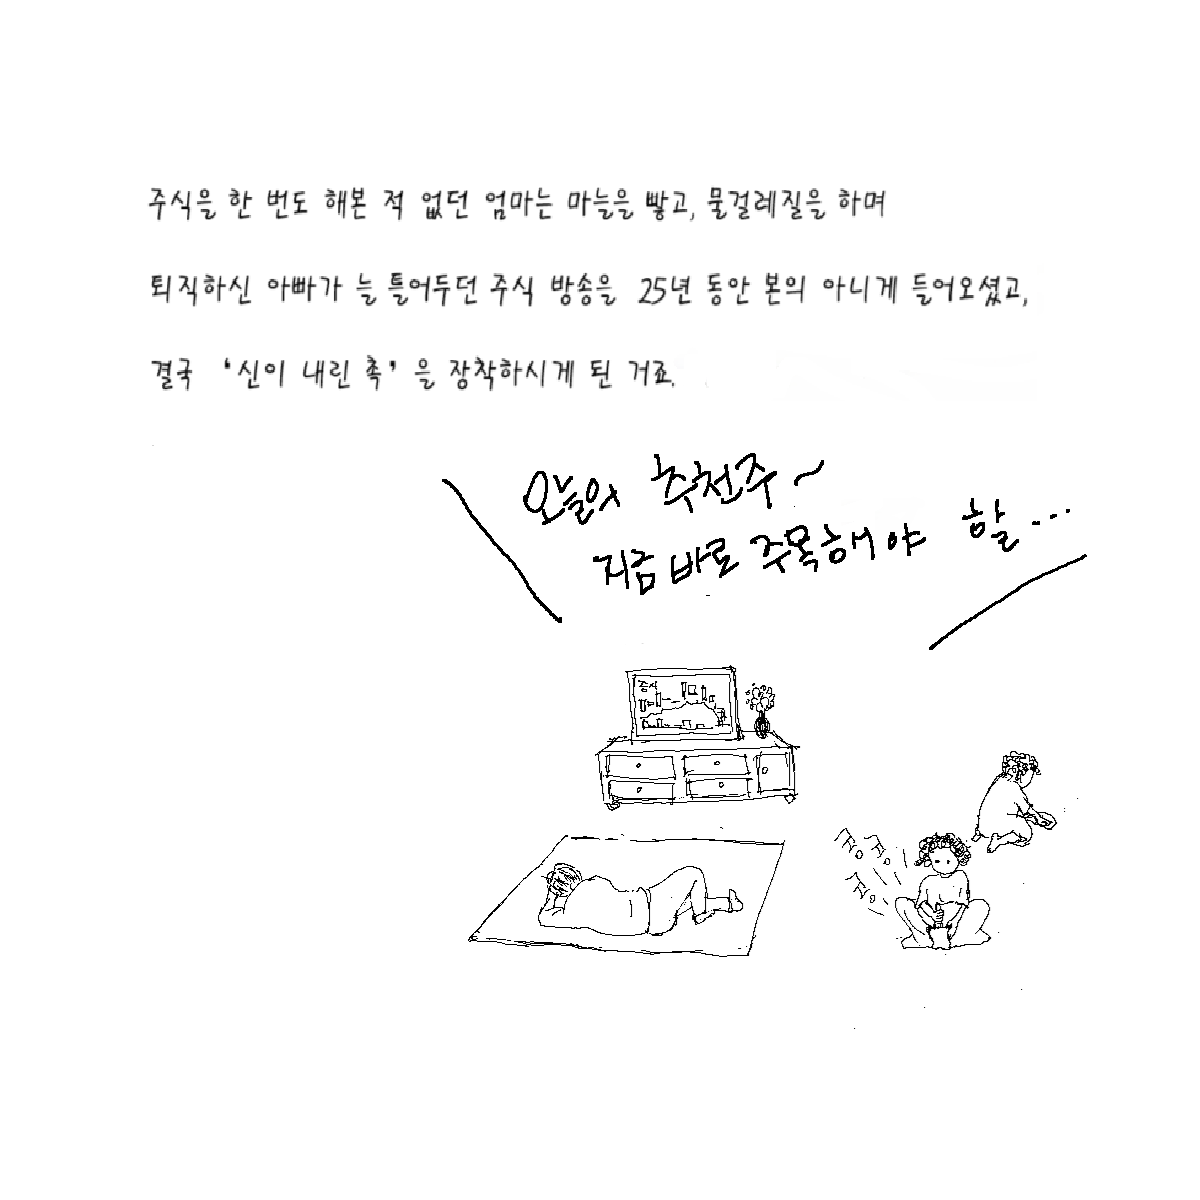 주식을 한 번도 해본 적 없던 엄마는 마늘을 빻고, 물걸레질을 하며
퇴직하신 아빠가 늘 틀어두던 주식 방송을 25년 동안 본의 아니게 들어오셨고,
결국 '신이 내린 촉' 을 장착하시게 된 거죠.
오늘의 추천주~
지금 바로 주목해야 할...
증시
콩콩
콩